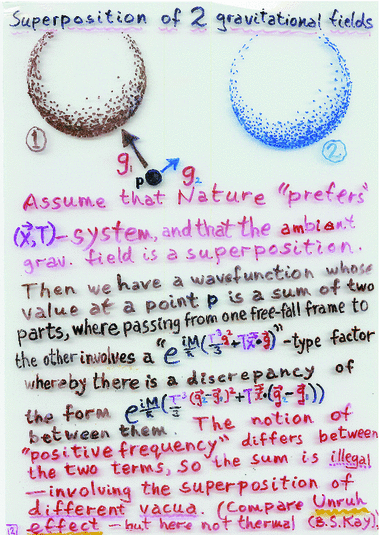 Superposition of 2 gravitational fields
① ②
g₁ P g₂
Assume that Nature "prefers"
(x⃗,T)-system, and that the ambient
grav. field is a superposition.
Then we have a wavefunction whose
value at a point p is a sum of two
parts, where passing from one free-fall frame to
the other involves a "e^{iM/ħ(T³/3 g⃗²+Tx⃗·g⃗)}"-type factor
whereby there is a discrepancy of
the form e^{iM/ħ(T³/3 (g⃗₂-g⃗₁)²+Tx⃗·(g⃗₂-g⃗₁))}
between them. The notion of
"positive frequency" differs between
the two terms, so the sum is illegal
—involving the superposition of
different vacua. (Compare Unruh
effect – but here not thermal (B.S.Kay).)